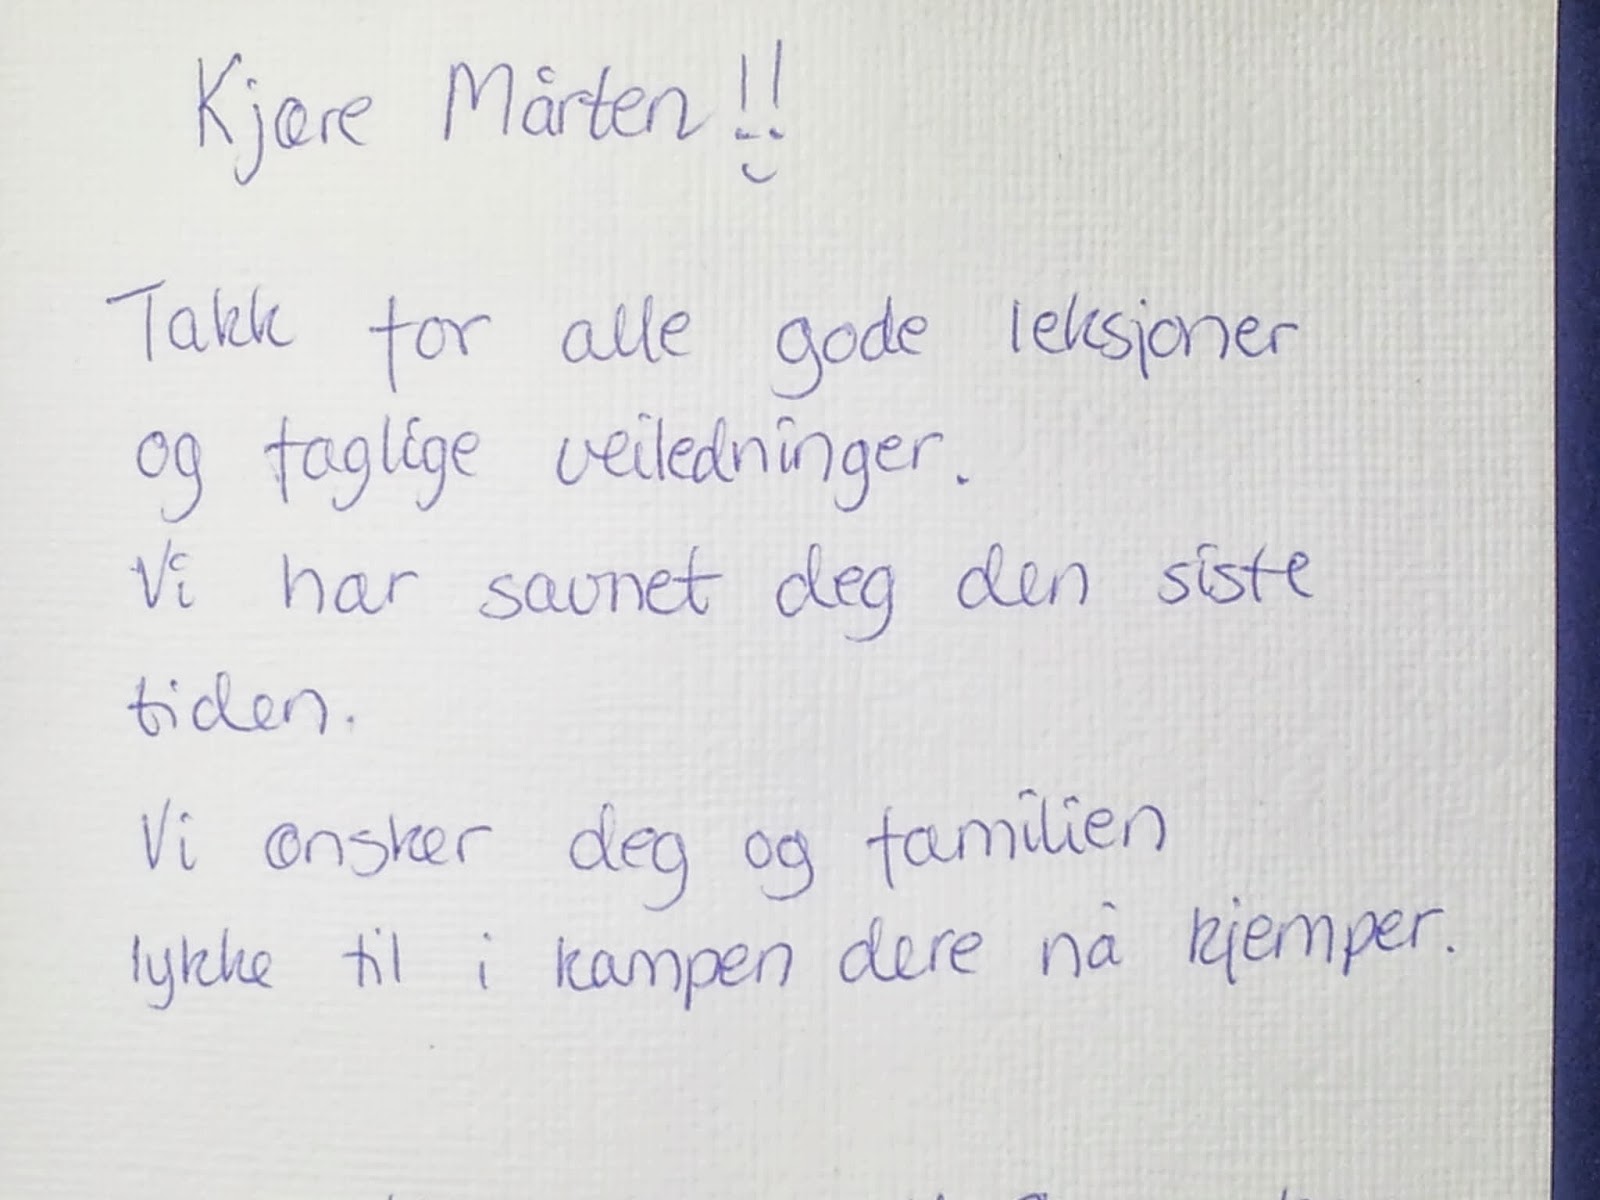 Kjære Mårten!!
Takk for alle gode leksjoner
og faglige veiledninger.
Vi har savnet deg den siste
tiden.
Vi ønsker deg og familien
lykke til i kampen dere nå kjemper.